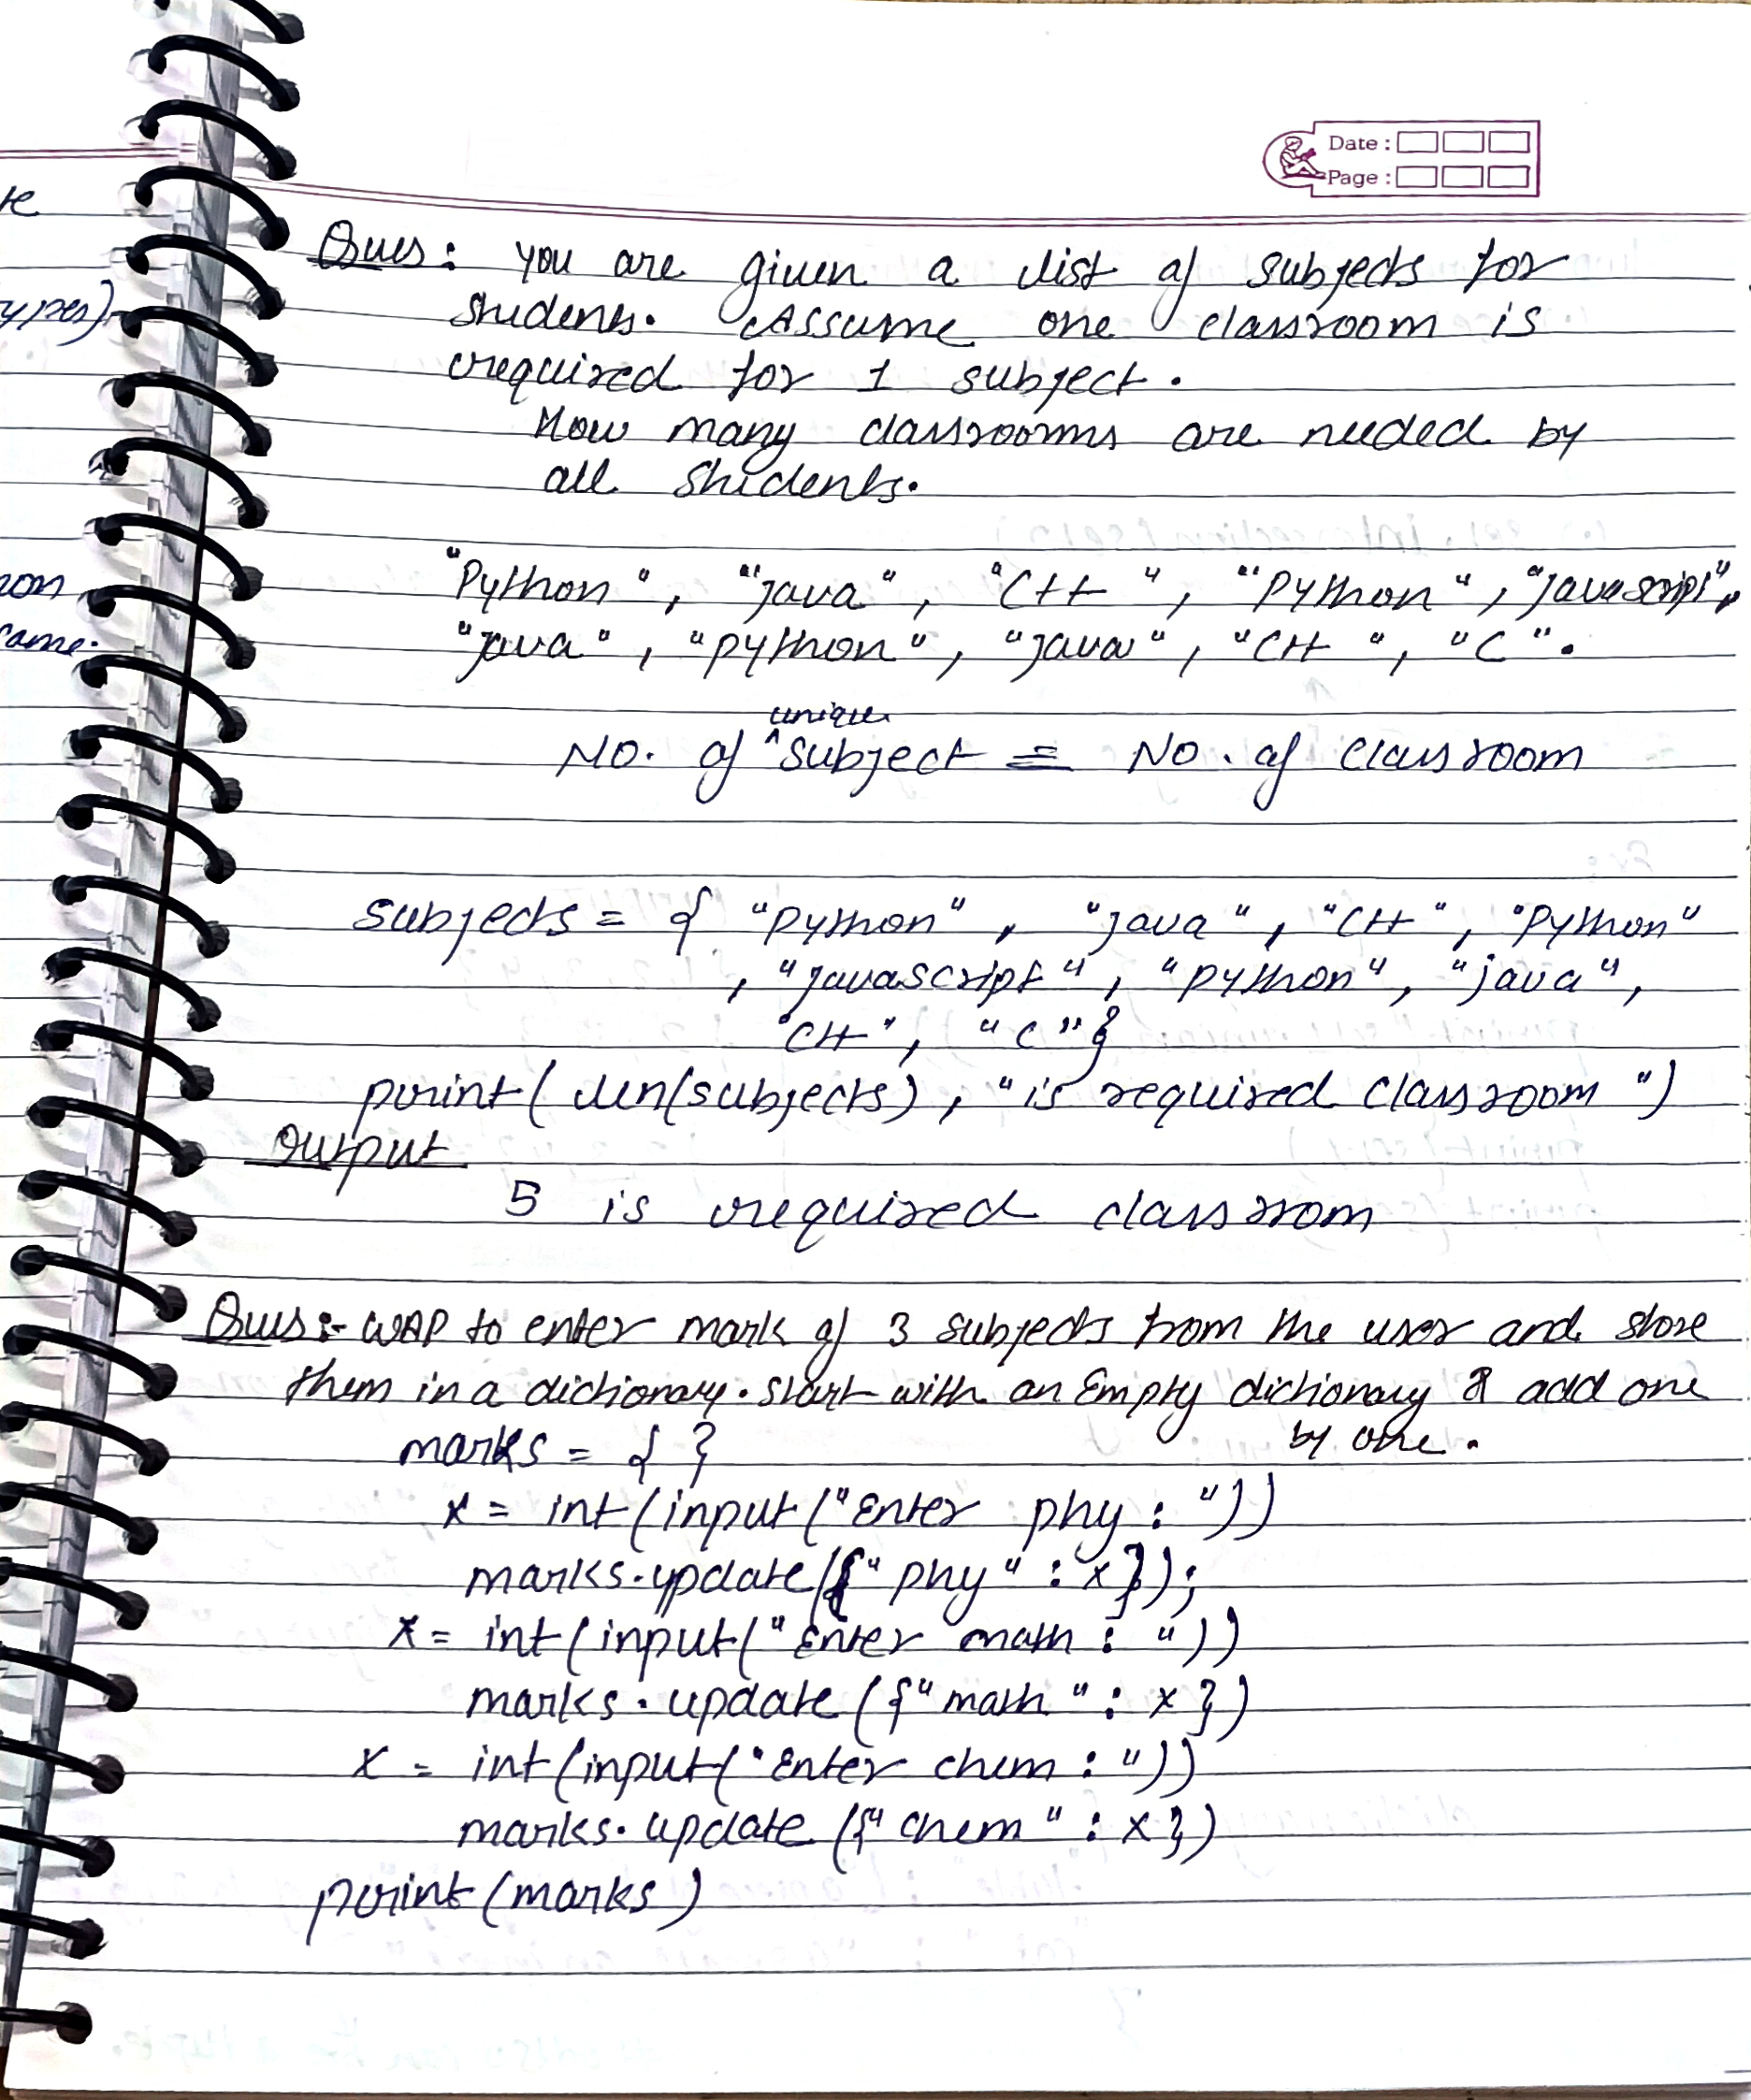 Date :
Page :
te
ypes)
non
same.
Ques: you are given a list of subjects for
students. Assume one classroom is
required for 1 subject.
How many classrooms are needed by
all students.
"Python", "java", "C++", "Python", "Javascript",
"java", "python", "java", "C++", "C".
unique
NO. of ^ subject = NO. of classroom
subjects = { "python", "java", "C++", "Python"
, "javascript", "python", "java",
"C++", "C"}
print( len(subjects), "is required classroom")
output
5 is required classroom
Ques:- WAP to enter mark of 3 subjects from the user and store
them in a dictionary. Start with an Empty dictionary & add one
by one.
marks = { }
x = int(input("Enter phy : "))
marks.update({"phy" : x});
x = int(input("Enter math : "))
marks.update({"math" : x})
x = int(input("Enter chem : "))
marks.update({"chem" : x})
print(marks)